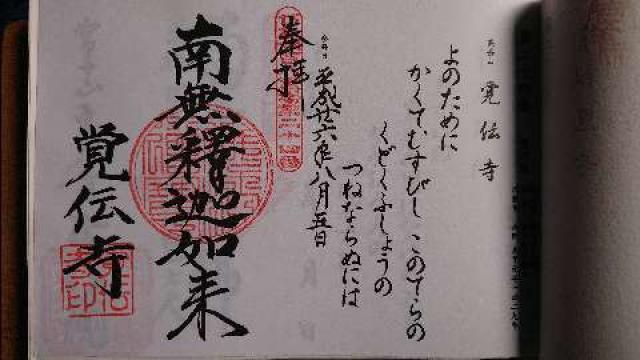 覚伝寺
よのために
かくてむすびし このてらの
くどくふしょうの
つねならぬには
平成廿六年八月五日
奉拝
南無釋迦如来
覚伝寺